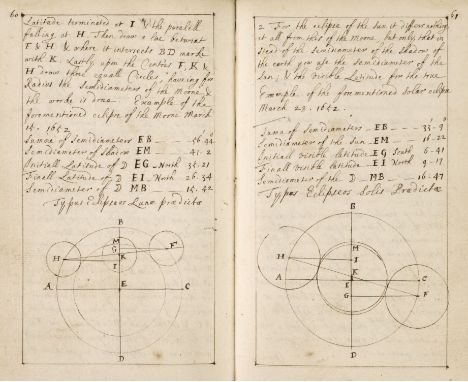 60
Latitude terminated at I & the parallell
falling at H. Then draw a line betweat
F & H & where it intersects BD marke
with K. Lastly upon the Centers F, K, &
H draw three equall Circles having for
Radius the Semidiameters of the Moone &
the worke is done. Example of the
forementioned eclipse of the Moone March
15. 1652
Summe of Semidiameters EB 56.44
Semidiameter of Shadow EM 41.2
Initiall Latitude of D EG North 35.21
Finall Latitude of D EI North 26.34
Semidiameter of D MB 15.42
Typus Eclipseos Lunæ prædictæ
B
M
G
F
H
K
I
A
E
C
D
61
2 For the eclipse of the Sun it differs nothing
at all from that of the Moone but only, that in
stead of the Semidiameter of the Shadow of
the earth you use the Semidiameter of the
Sun; & the visible Latitude, for the true
Example of the forementioned Solar eclipse
March 29. 1652.
Summe of Semidiameters EB 33.9
Semidiameter of the Sun EM 16.22
Initiall visible latitude EG South 6.41
Finall visible latitude EI North 9.17
Semidiameter of the D MB 16.47
Typus Eclipseos Solis Prædictæ
B
M
H
I
K
A
E
C
G
F
D